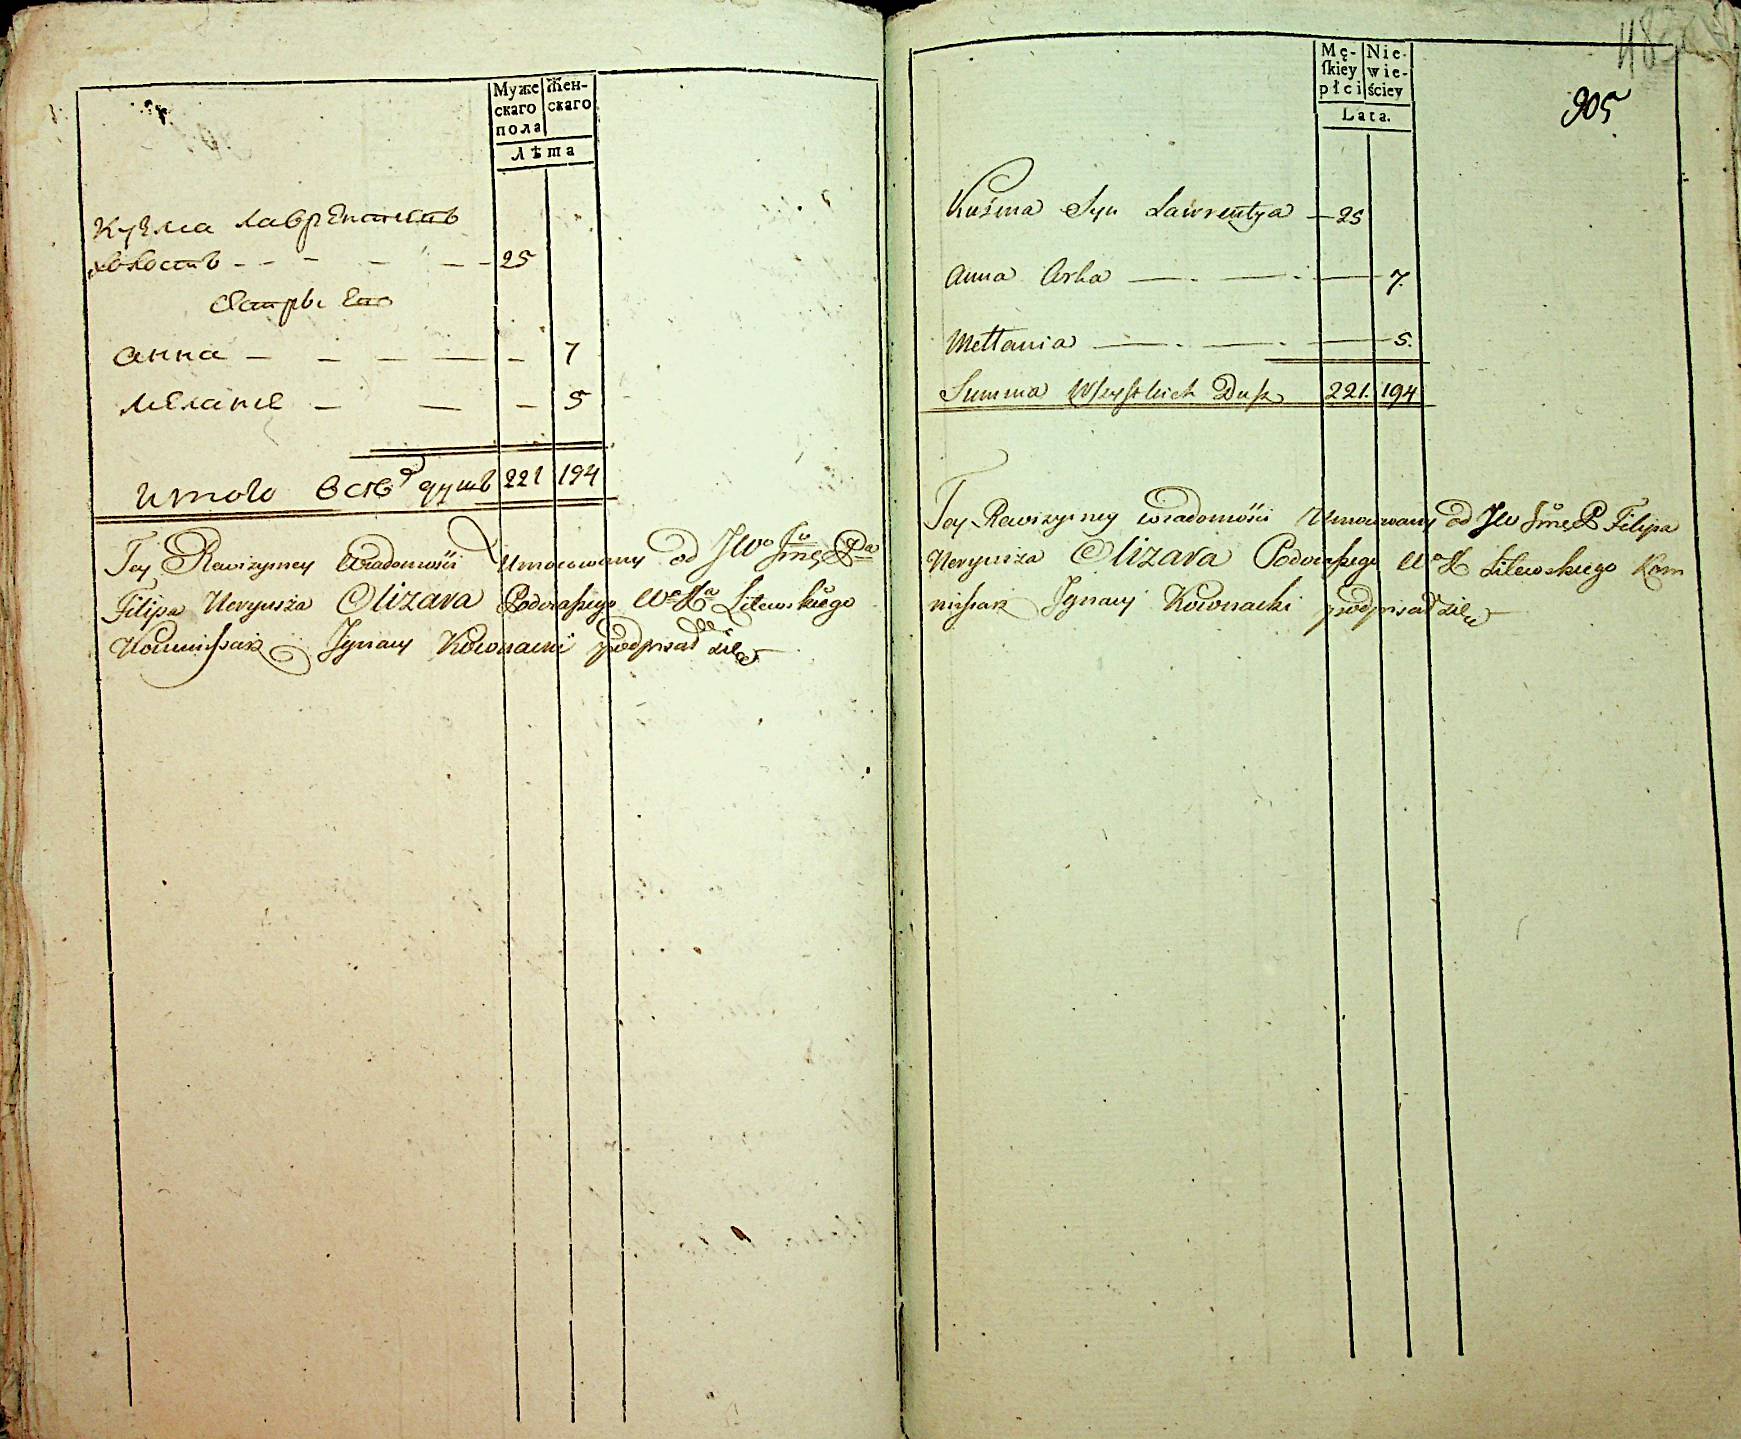 Муже Жен-
скаго скаго
пола
лѣта
Кузма лаврентиевъ
холостъ - - - - - 25
сестры его
анна - - - - - 7
мелане - - - 5
итого всѣхъ душъ 221 194
Tey Rewizyiney Wiadomości Umocowany od JWo Jmę Pa
Filipa Neryusza Olizara Podczaszego Wo Xa Litewskiego
Kommissarz Ignacy Kownacki podpisał się
Mę- Nie-
skiey wie-
płci ściey
Lata.
905
Kuźma Syn Lawrentya - 25
Anna Corka - - - 7.
Mellania - - - 5.
Summa Wszystkich Dusz 221. 194
Tey Rewizyiney wiadomości Umocowany od JW Jmę P Filipa
Neryusza Olizara Podczaszego Wo X Litewskiego Kom
missarz Ignacy Kownacki podpisał się